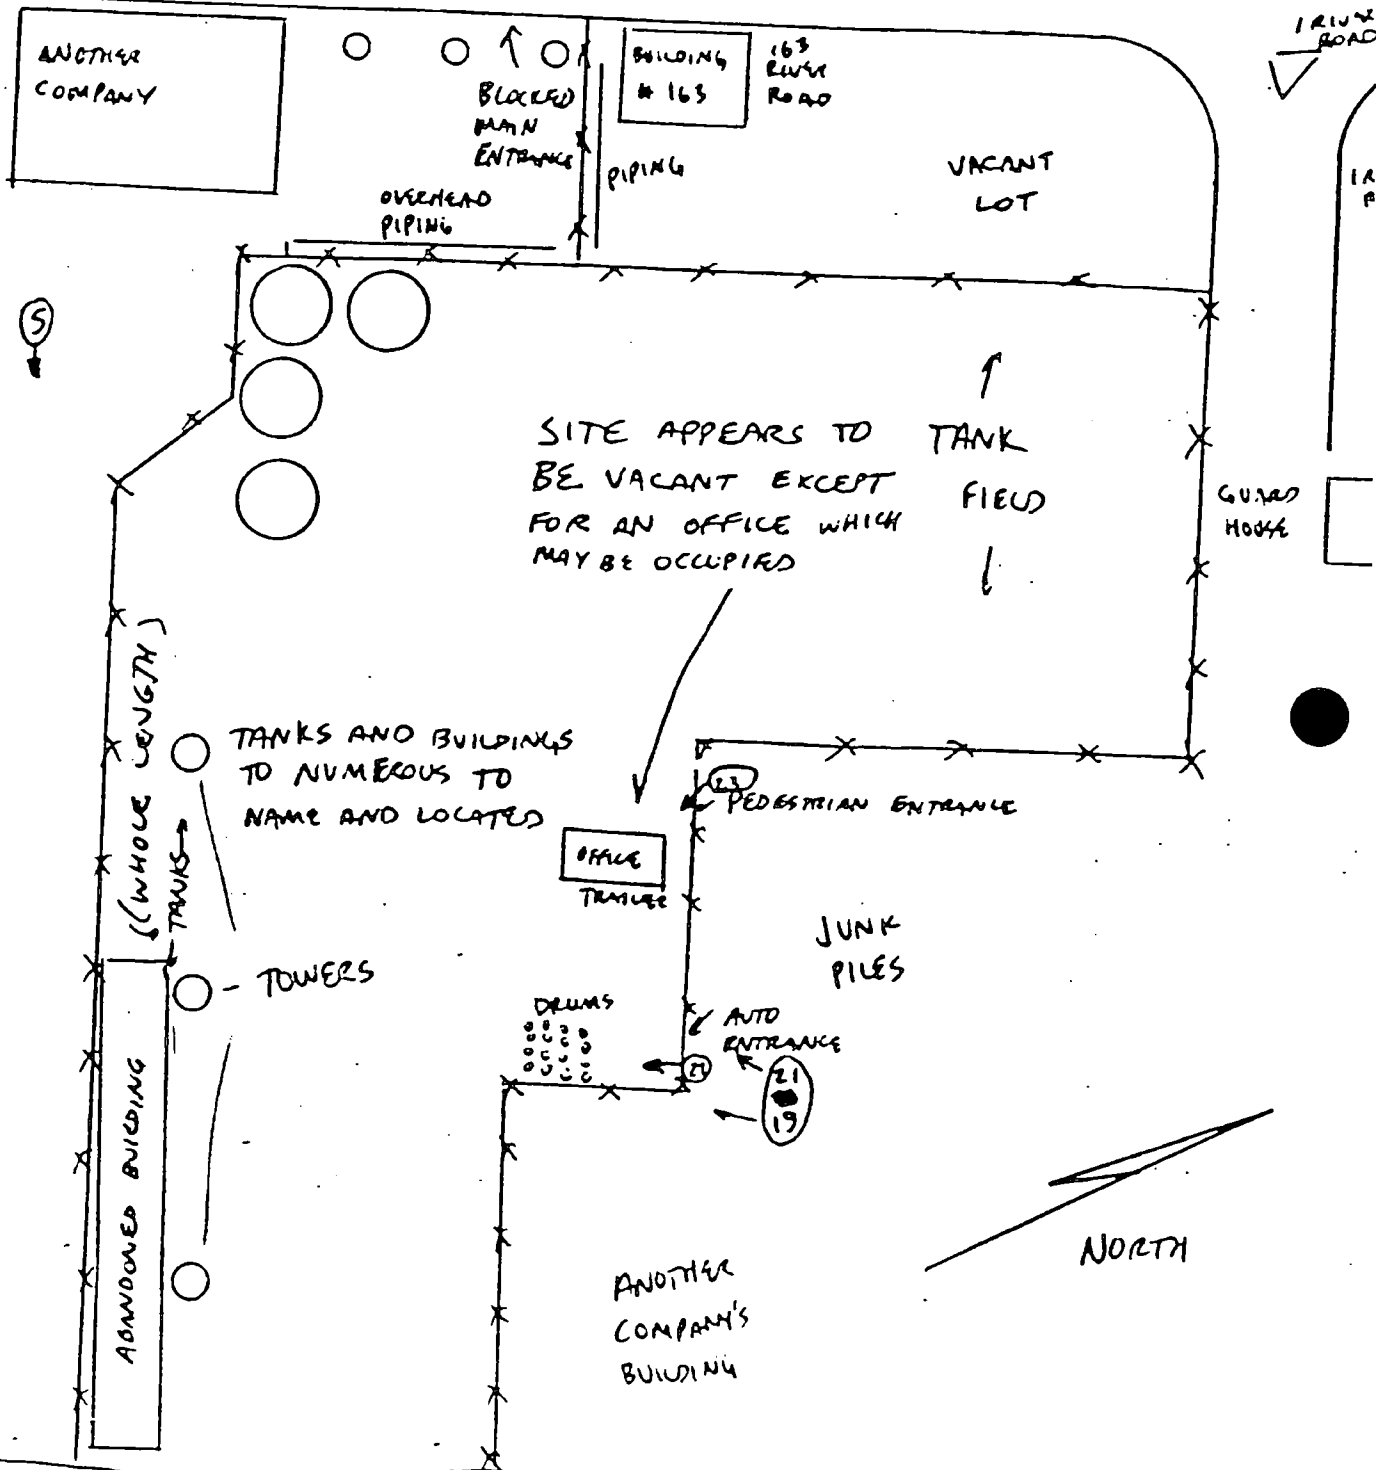 ANOTHER
COMPANY
BLOCKED
MAIN
ENTRANCE
BUILDING
# 163
163
RIVER
ROAD
1 RIVER
ROAD
PIPING
OVERHEAD
PIPING
VACANT
LOT
1 R
5
SITE APPEARS TO
BE VACANT EXCEPT
FOR AN OFFICE WHICH
MAY BE OCCUPIED
TANK
FIELD
GUARD
HOUSE
(WHOLE LENGTH)
TANKS
TANKS AND BUILDINGS
TO NUMEROUS TO
NAME AND LOCATED
23
PEDESTRIAN ENTRANCE
OFFICE
TRAILER
JUNK
PILES
TOWERS
DRUMS
AUTO
ENTRANCE
21
19
ABANDONED BUILDING
NORTH
ANOTHER
COMPANY'S
BUILDING